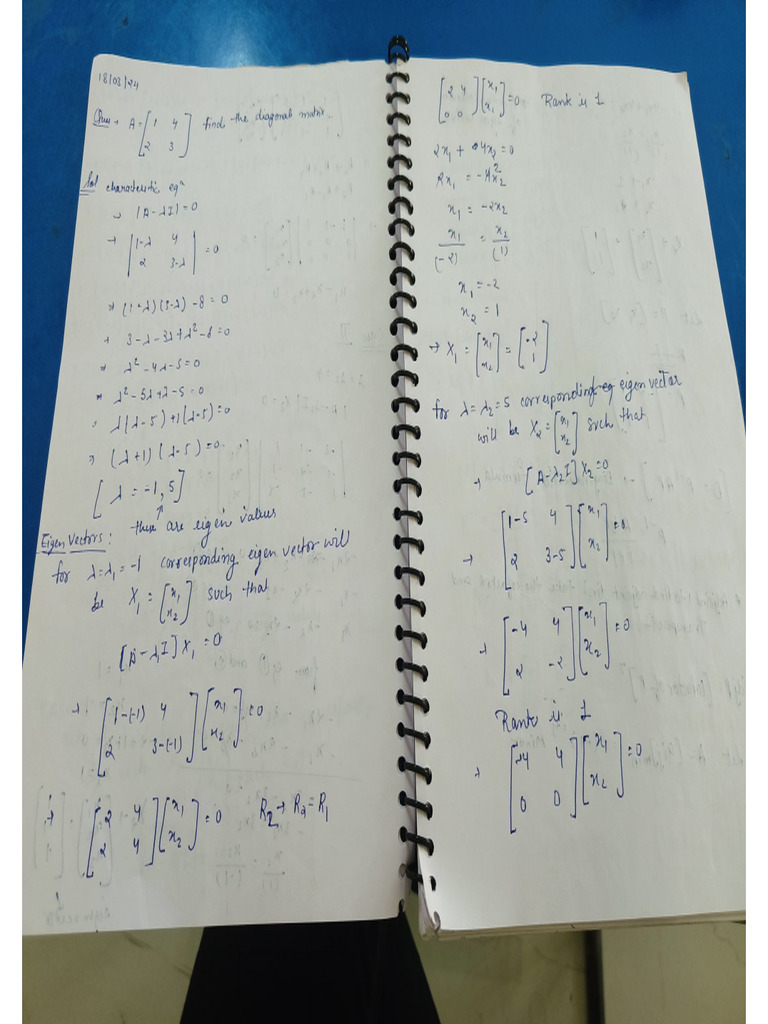 18/03/24
Ques → A = [1 4
2 3] find the diagonal matrix
Sol characteristic eqⁿ
→ |A-λI| = 0
→ |1-λ 4
2 3-λ| = 0
→ (1-λ)(3-λ) -8 = 0
→ 3-λ-3λ+λ²-8=0
→ λ²-4λ-5=0
→ λ²-5λ+λ-5=0
→ λ(λ-5)+1(λ-5)=0
→ (λ+1)(λ-5)=0
[λ = -1, 5]
Eigen Vectors: these are eigen values
for λ=λ₁=-1 corresponding eigen vector will
be X₁ = [x₁
x₂] such that
[A-λ₁I]X₁=0
→ [1-(-1) 4
2 3-(-1)] [x₁
x₂] =0
→ [2 4
2 4] [x₁
x₂] =0 R₂→R₂=R₁
[2 4
0 0] [x₁
x₁] =0 Rank is 1
2x₁ + 4x₂ =0
2x₁ = -4x₂
x₁ = -2x₂
x₁/(-2) = x₂/(1)
x₁=-2
x₂ = 1
→ X₁ = [x₁
x₂] = [-2
1]
for λ=λ₂=5 corresponding eigen vector
will be X₂ = [x₁
x₂] such that
→ [A-λ₂I]X₂=0
→ [1-5 4
2 3-5] [x₁
x₂] =0
→ [-4 4
2 -2] [x₁
x₂] =0
Rank is 1
→ [-4 4
0 0] [x₁
x₂] =0